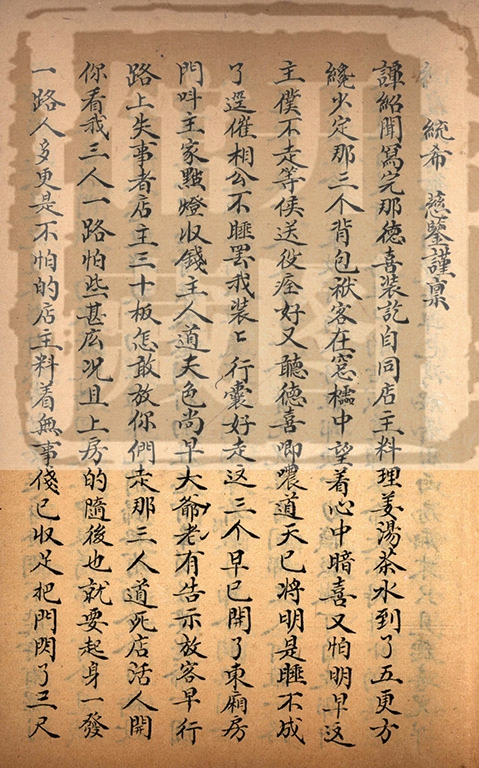 統希　慈鑒謹稟
譚紹聞寫完那德喜裝訖自同店主料理姜湯茶水到了五更方
纔少定那三个背包袱客在窓檽中望着心中暗喜又怕明早这
主僕不走等侯送役痊好又聽德喜唧噥道天已將明是睡不成
了逕催相公不睡罢我装〻行囊好走这三个早已開了東厢房
門呌主家㸃燈収錢主人道天色尚早大爺老有告示放客早行
路上失事者店主三十板怎敢放你們走那三人道死店活人開
你看我三人一路怕些甚広况且上房的隨後也就要起身一發
一路人多更是不怕的店主料着無事儀已収足把門閃了三尺